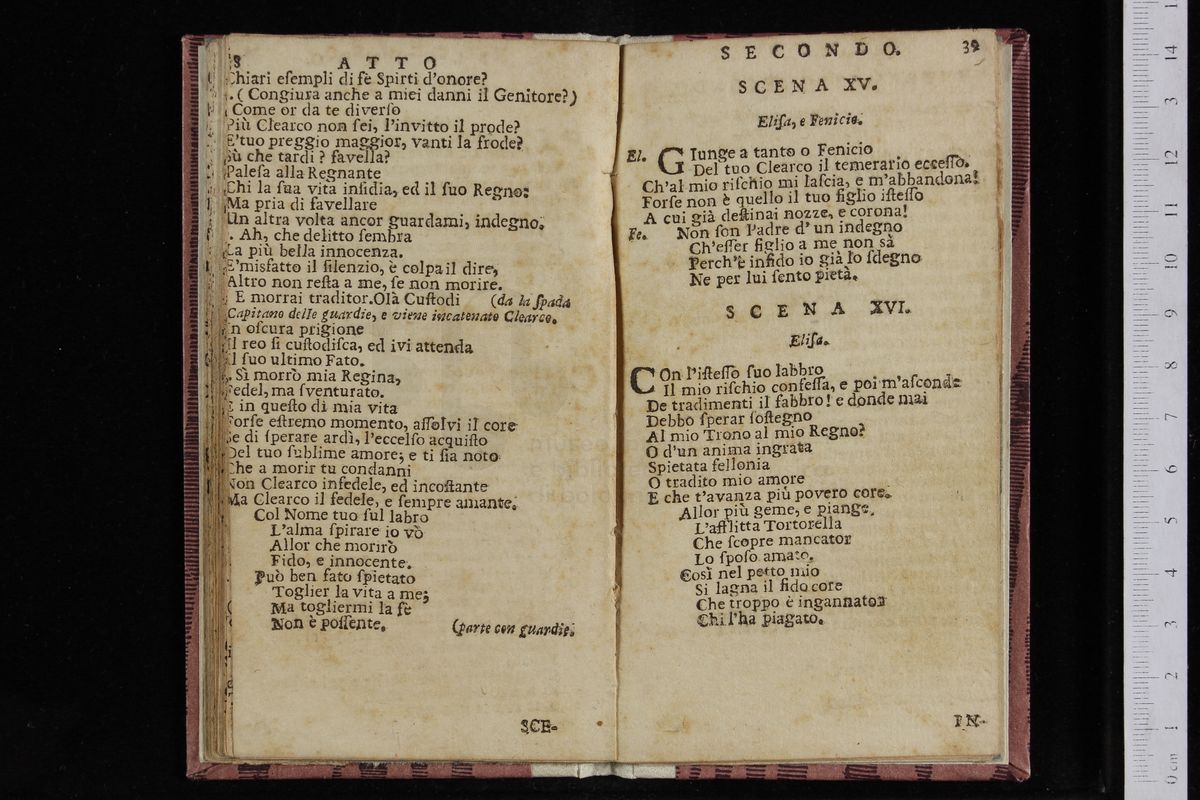 8 ATTO
Chiari eſempli di fè Spirti d'onore?
. ( Congiura anche a miei danni il Genitore?)
Come or da te diverſo
Più Clearco non ſei, l'invitto il prode?
E'tuo preggio maggior, vanti la frode?
Sù che tardi ? favella?
Paleſa alla Regnante
Chi la ſua vita inſidia, ed il ſuo Regno:
Ma pria di favellare
Un altra volta ancor guardami, indegno.
. Ah, che delitto ſembra
La più bella innocenza.
E'misfatto il ſilenzio, è colpa il dire,
Altro non reſta a me, ſe non morire.
E morrai traditor.Olà Cuſtodi (da la ſpada
Capitano delle guardie, e viene incatenato Clearco.
In oſcura prigione
Il reo ſi cuſtodiſca, ed ivi attenda
Il ſuo ultimo Fato.
. Sì morrò mia Regina,
Fedel, ma ſventurato.
E in queſto di mia vita
Forſe eſtremo momento, aſſolvi il core
Se di ſperare ardì, l'eccelſo acquiſto
Del tuo ſublime amore; e ti ſia noto
Che a morir tu condanni
Non Clearco infedele, ed incoſtante
Ma Clearco il fedele, e ſempre amante.
Col Nome tuo ſul labro
L'alma ſpirare io vò
Allor che morirò
Fido, e innocente.
Può ben fato ſpietato
Toglier la vita a me;
Ma togliermi la fè
Non è poſſente. (parte con guardie.
SCE-
SECONDO. 39
SCENA XV.
Eliſa, e Fenicio.
El. GIunge a tanto o Fenicio
Del tuo Clearco il temerario ecceſſo.
Ch'al mio riſchio mi laſcia, e m'abbandona!
Forſe non è quello il tuo figlio iſteſſo
A cui già deſtinai nozze, e corona!
Fe. Non ſon Padre d' un indegno
Ch'eſſer figlio a me non sà
Perch'è infido io già lo ſdegno
Ne per lui ſento pietà.
SCENA XVI.
Eliſa.
COn l'iſteſſo ſuo labbro
Il mio riſchio confeſſa, e poi m'aſconde
De tradimenti il fabbro! e donde mai
Debbo ſperar ſoſtegno
Al mio Trono al mio Regno?
O d'un anima ingrata
Spietata fellonia
O tradito mio amore
E che t'avanza più povero core.
Allor più geme, e piange.
L'afflitta Tortorella
Che ſcopre mancator
Lo ſpoſo amato.
Così nel petto mio
Si lagna il fido core
Che troppo è ingannator
Chi l'ha piagato.
IN-